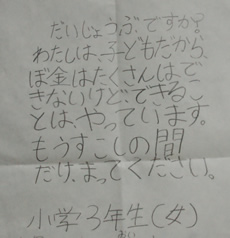 だいじょうぶ、ですか?
わたしは、子どもだから、
ぼ金はたくさんはで
きないけど、できるこ
とは、やっています。
もうすこしの間
だけ、まってください。
小学3年生(女)